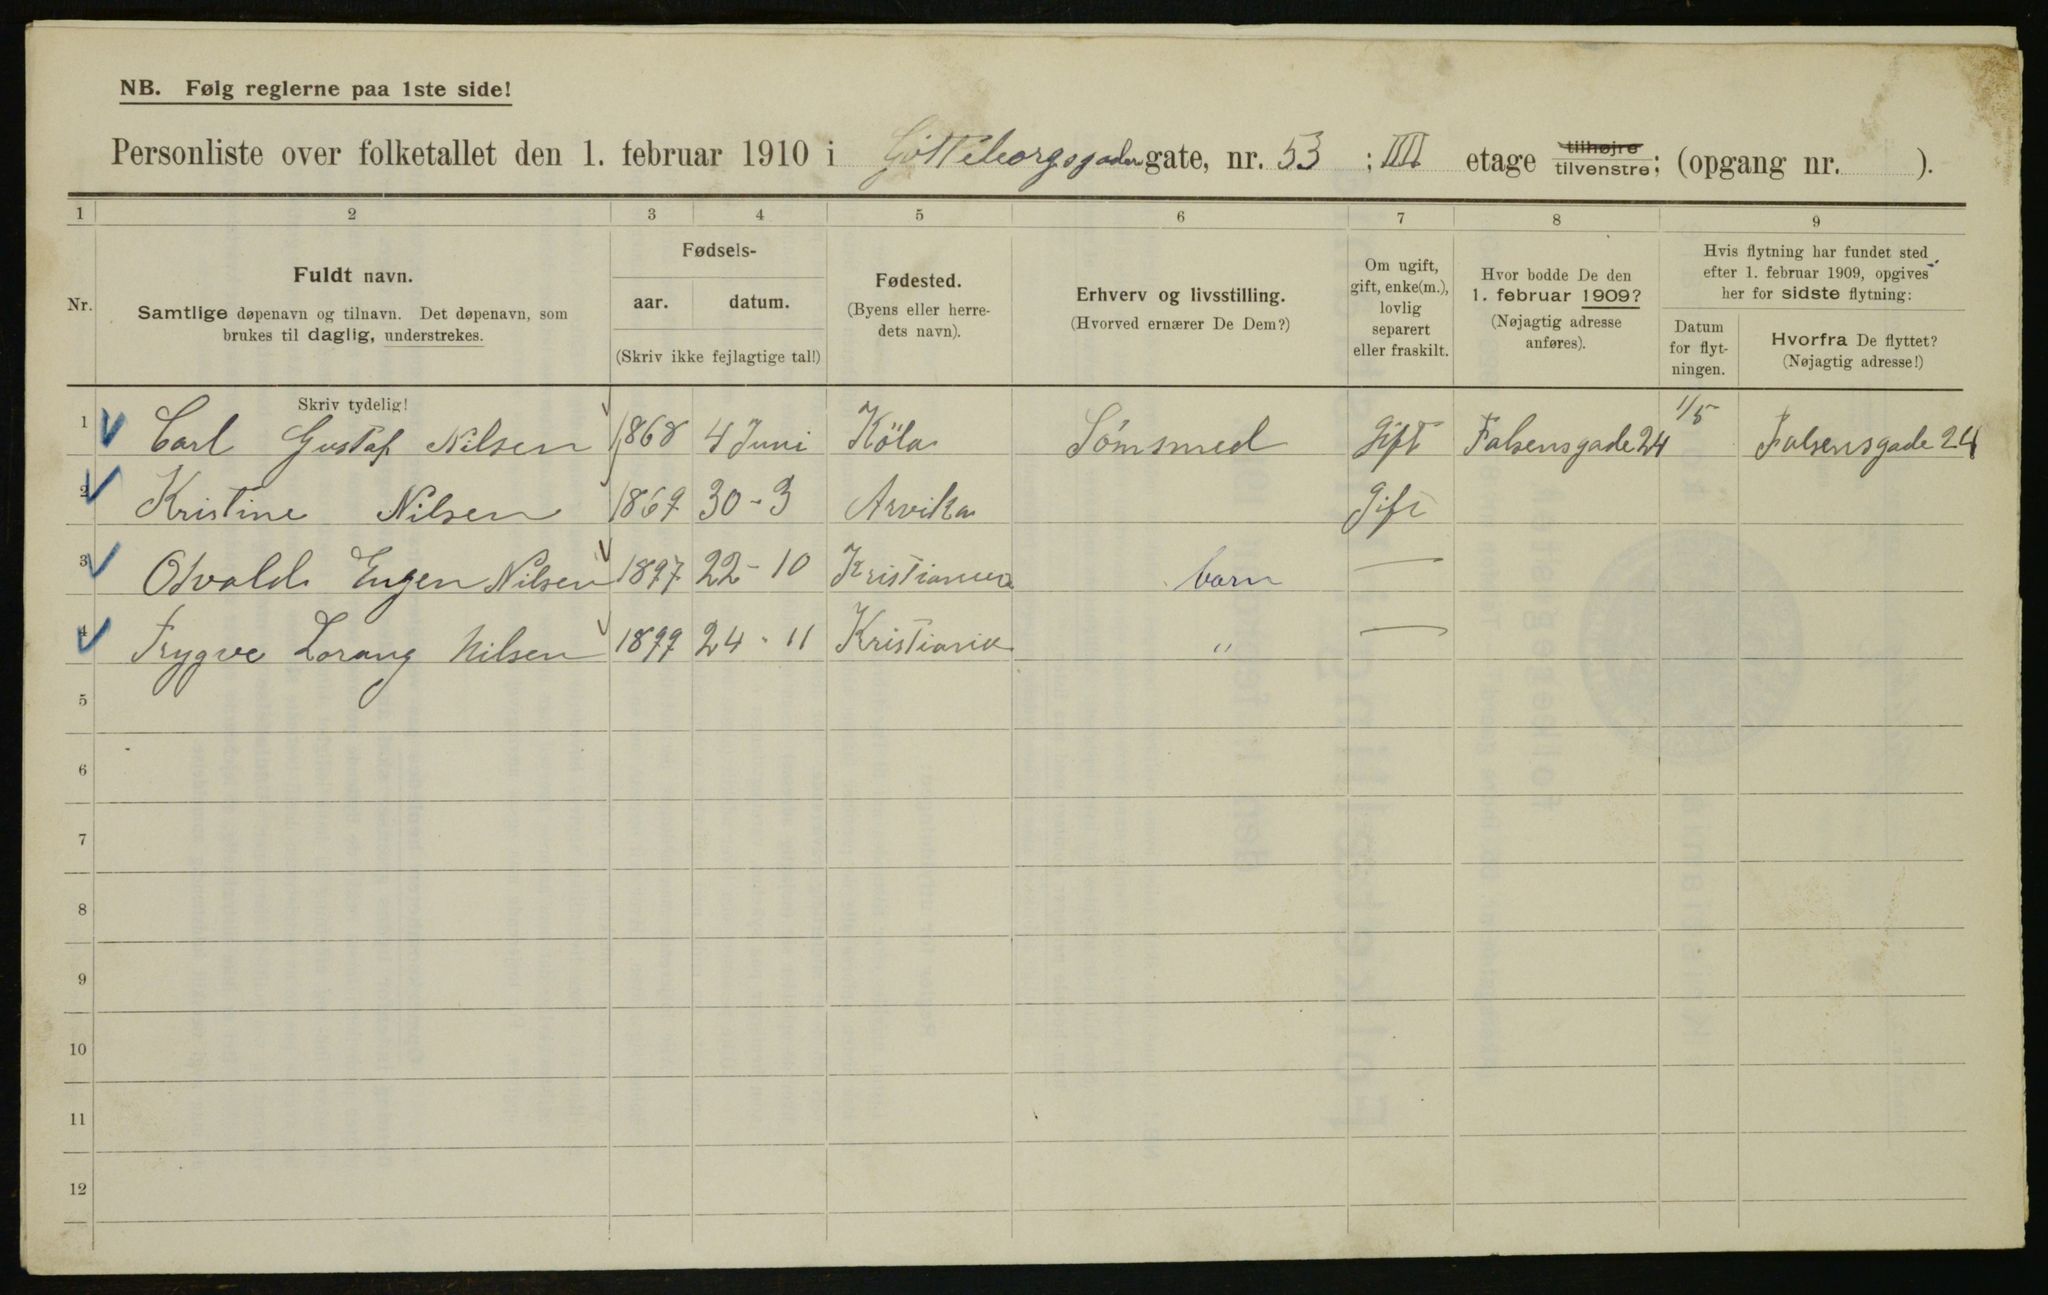 NB. Følg reglerne paa 1ste side!
Personliste over folketallet den 1. februar 1910 i Gøtteborgsgaden gate, nr. 53 ; III etage tilhøjre tilvenstre; (opgang nr. ).
1 2 3 4 5 6 7 8 9
Nr.
Fuldt navn.
Samtlige døpenavn og tilnavn. Det døpenavn, som
brukes til daglig, understrekes.
Fødsels-
aar. datum.
(Skriv ikke fejlagtige tal!)
Fødested.
(Byens eller herre-
dets navn).
Erhverv og livsstilling.
(Hvorved ernærer De Dem?)
Om ugift,
gift, enke(m.),
lovlig
separert
eller fraskilt.
Hvor bodde De den
1. februar 1909?
(Nøjagtig adresse
anføres).
Hvis flytning har fundet sted
efter 1. februar 1909, opgives
her for sidste flytning:
Datum
for flyt-
ningen.
Hvorfra De flyttet?
(Nøjagtig adresse!)
Skriv tydelig!
1 Carl Gustaf Nilsen 1868 4 Juni Köla Sömsmed Gift Falsensgade 24 1/5 Falsensgade 24
2 Kristine Nilsen 1869 30-3 Arvika Gift
3 Odvald Eugen Nilsen 1897 22-10 Kristiania barn —
4 Trygve Lorang Nilsen 1899 24-11 Kristiania " —
5
6
7
8
9
10
11
12